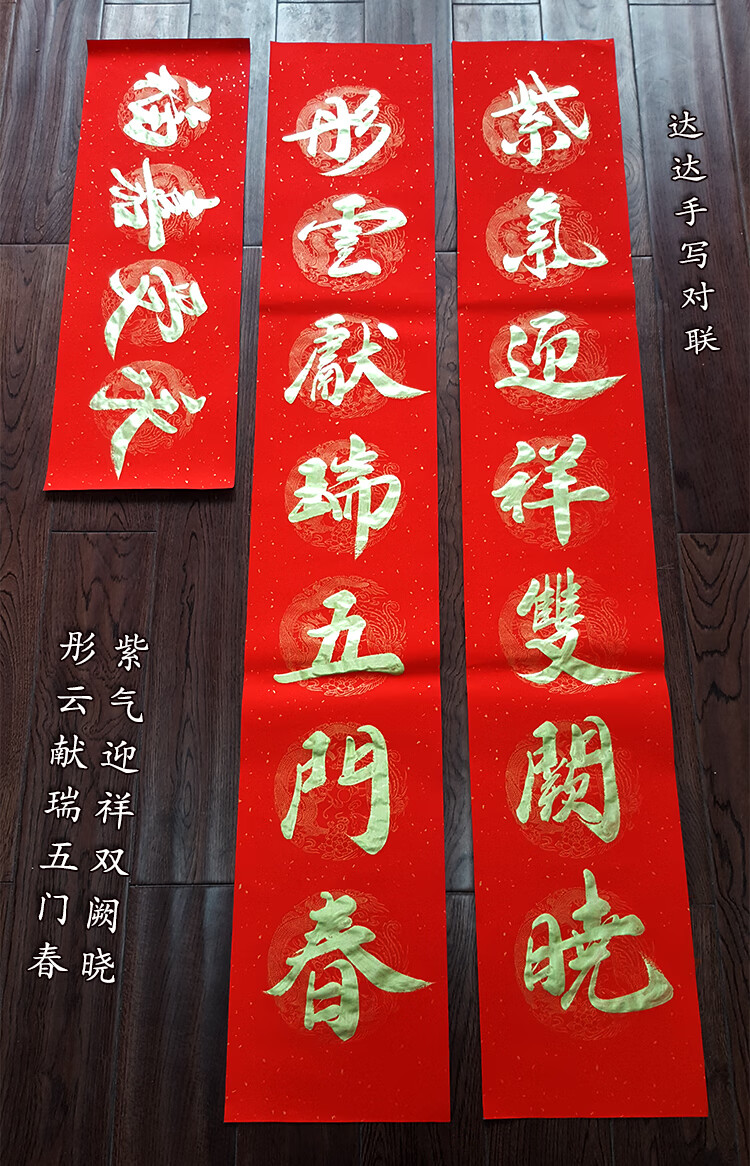 达达手写对联
紫氣迎祥雙闕曉
彤雲獻瑞五門春
永受嘉福
紫气迎祥双阙晓
彤云献瑞五门春